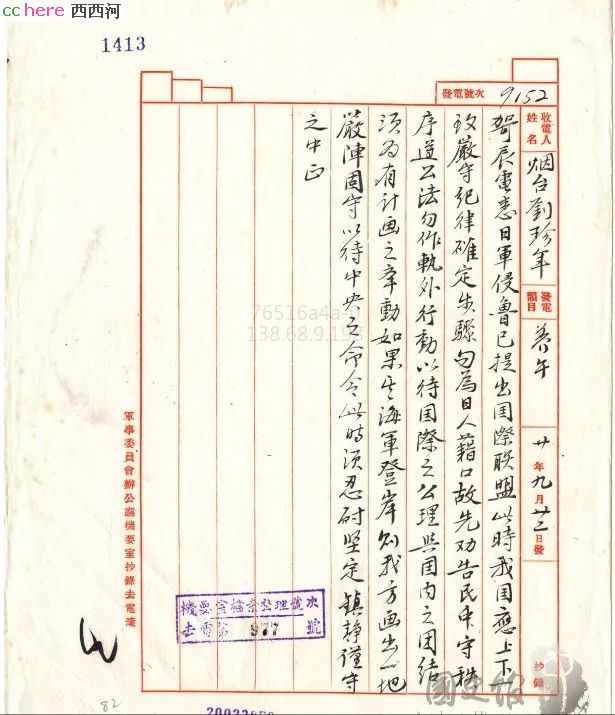 cchere 西西河
1413
發電號次 9152
收電人姓名 烟台劉珍年
發電韻目 養午
廿年九月廿二日發
抄錄
哿辰電悉日軍侵魯已提出国際联盟此時我国應上下一
致嚴守紀律確定步驟勿為日人藉口故先劝告民串守秩
序遵公法勿作軌外行動以待国際之公理與国内之团结
须为有计画之牵動如果其海軍登岸则我方画出一地
嚴陣固守以待中央之命令此時须忍耐坚定鎮静谨守
之中正
軍事委員會辦公廳機要室抄錄去電箋
機要室檔案整理號次
去電第 977 號
76516a4a-
138.68.9.19
82